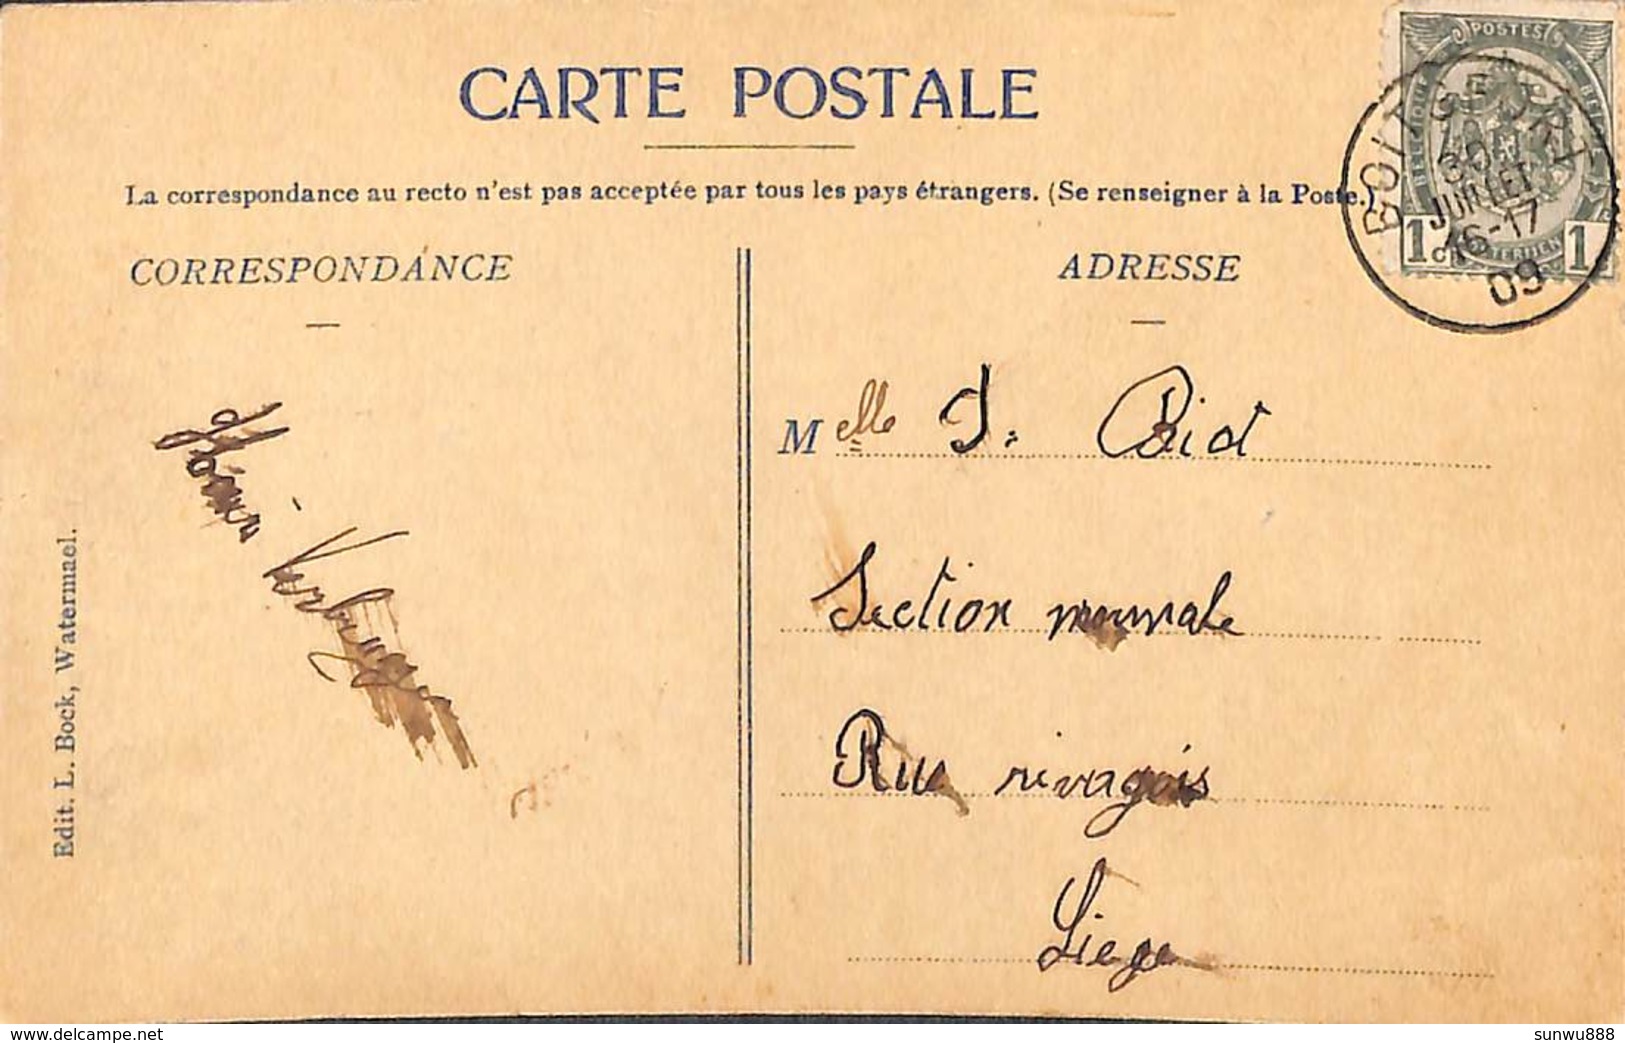 CARTE POSTALE
La correspondance au recto n'est pas acceptée par tous les pays étrangers. (Se renseigner à la Poste.)
CORRESPONDANCE
ADRESSE
POSTES
BELGIQUE
1 C
1
BOITSFORT
30
JUILLET
16-17
09
Melle J. Bid
Section normale
Rue rivageois
Liege
Edit. L. Bock, Watermael.
www.delcampe.net
sunwu888